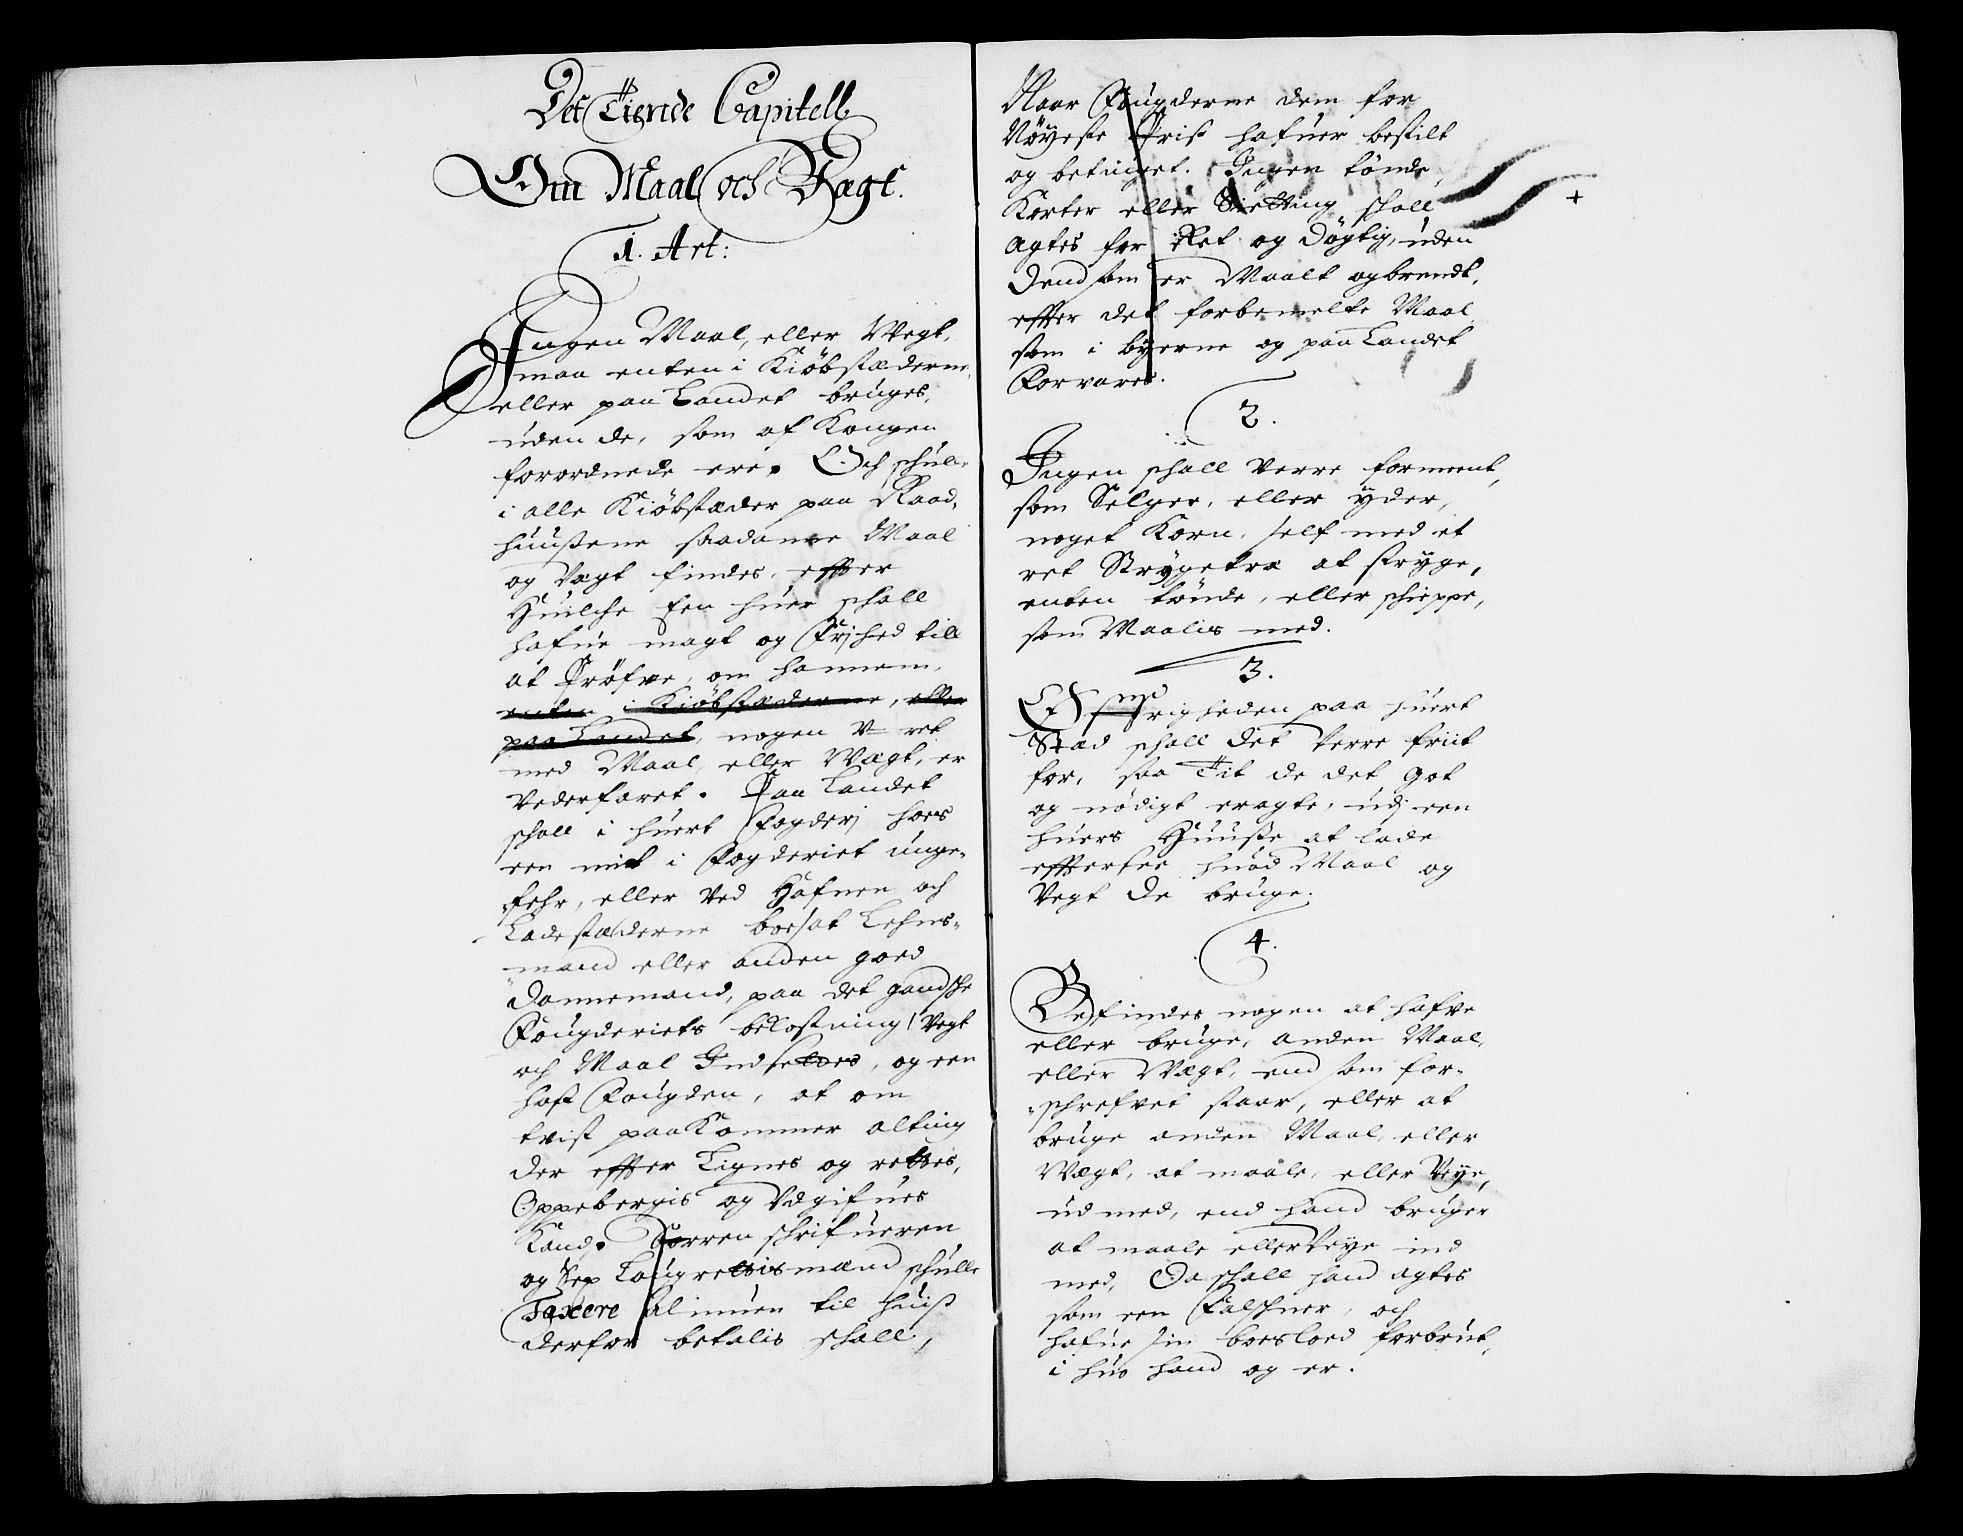 Det Tiende Capitell
Om Maal och Vagt.
1. Art:
Ingen Maal, eller Vegt,
maa enten i Kiöbstæderne,
eller paa Landet bruges,
uden de, som af Kongen
forordnede ere. Och schulle
i alle Kiöbstæder paa Raad-
huußene saadanne Maal
og Vegt findes, effter
Huilche Een huer schall
hafue magt og Frjhed till
at Pröfve, om hannem,
enten i Kiöbstæderne, eller
paa Landet, nogen V-ret
med Maal, eller Vægt, er
Vederfaret. Paa Landet
schall i huert Fogderj hoes
een mit i Fogderiet unge-
fehr, eller Ved Hafnen och
Ladestæderne boesat Lehns-
mand eller anden goed
Dannemand, paa det gandsche
Fougderiets bekostning Vegt
och Maal Indsettes, og een
hoß Fougden, at om
tvist paakommer alting
der effter Lignes og rettes,
Oppebergis og Udgifues
Kand. Sorrenschrifueren
og Sex Laugrettismænd schulle
Taxere Alinuen til huiß
derfor betalis schall,
Naar Fougderne dem for
Nöyeste Priß hafuer bestilt
og betinget. Ingen tönde,
Korter eller Sietting schall
agtes for Ret og Dögtig, uden
Dend som er Maalt og brendt,
effter det forbemelte Maal
som i byerne og paa Landet
Forvares.
2.
Ingen schall verre forment,
som Selger, eller yder,
noget Korn, self med et
ret Strygetræ at stryge,
enten tönde, eller schieppe,
som Maalis med.
3.
Öfrigheden paa huert
Stad schall det verre friit
for, saa Tit de det Got
og nödigt eragte, udj een
huers Huuße at lade
effterse huad Maal og
Vegt de bruge.
4.
Befindes nogen at hafve
eller bruge, anden Maal,
eller Vægt, end som for-
schrefvet staar, eller at
bruge anden Maal, eller
Vægt, at maale, eller Veye,
ud med, end hand bruger
at maale eller Veye ind
med, Da schall hand agtes
som een Falschner, och
hafue sin boeslod forbrut,
i huo hand og er.